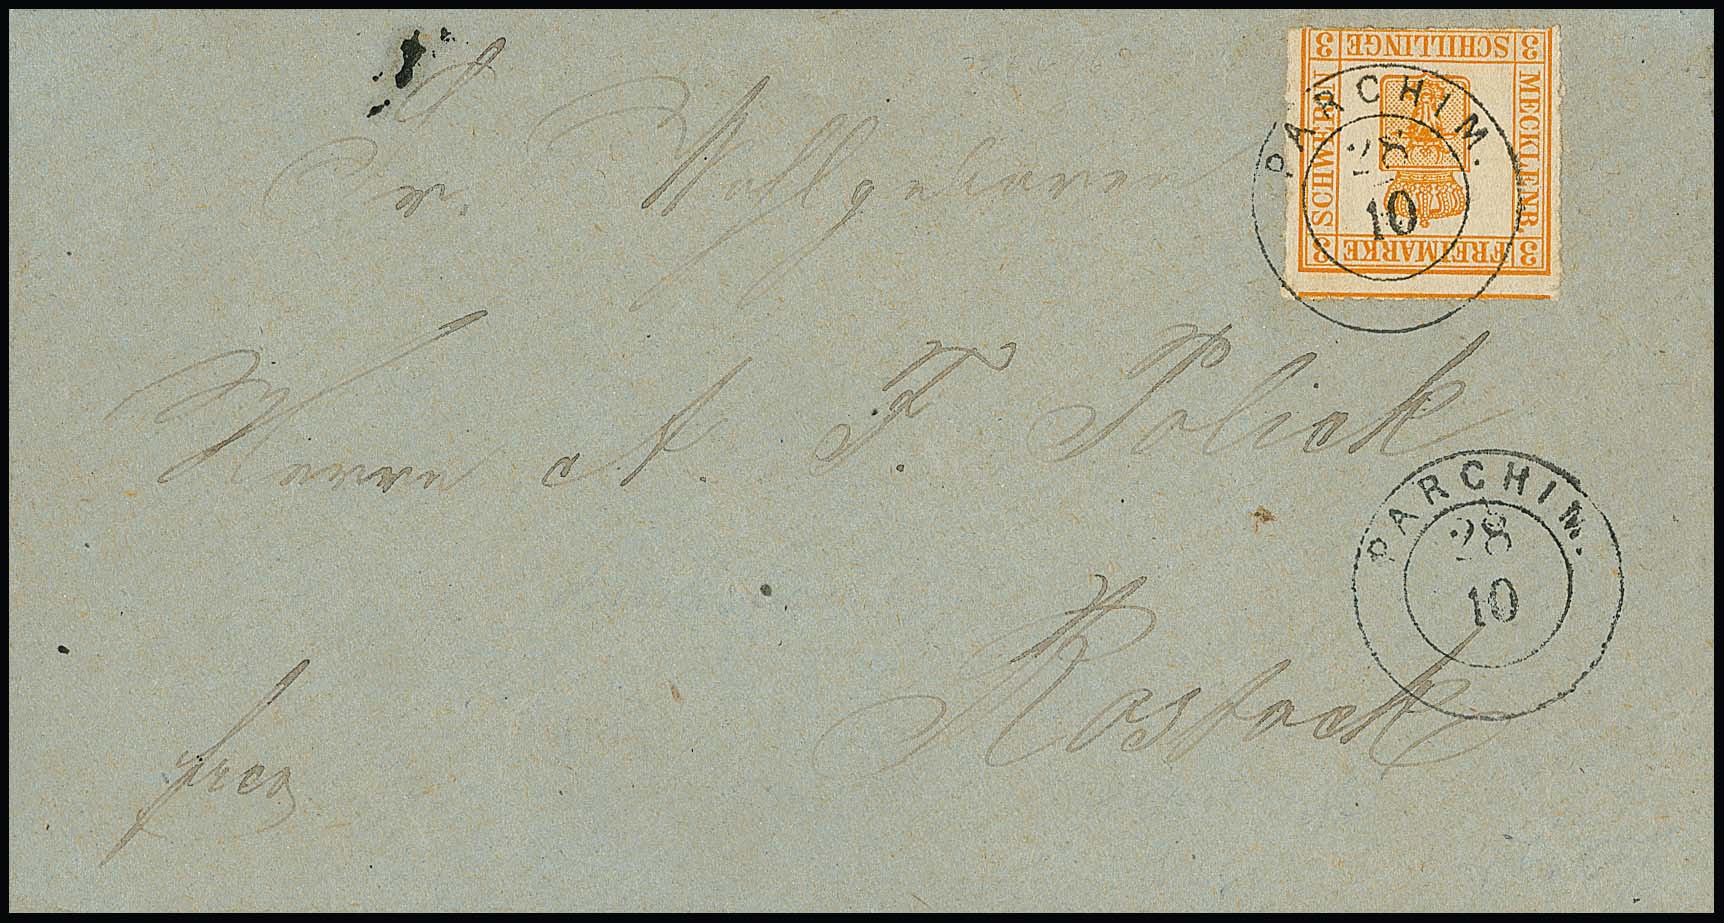 3 SCHILLINGE 3
MECKLENB
SCHWERIN
3 FREIMARKE 3
PARCHIM.
28
10
Sr. Wohlgeboren
Herrn A. F. Polick
PARCHIM.
28
10
Rostock
frco